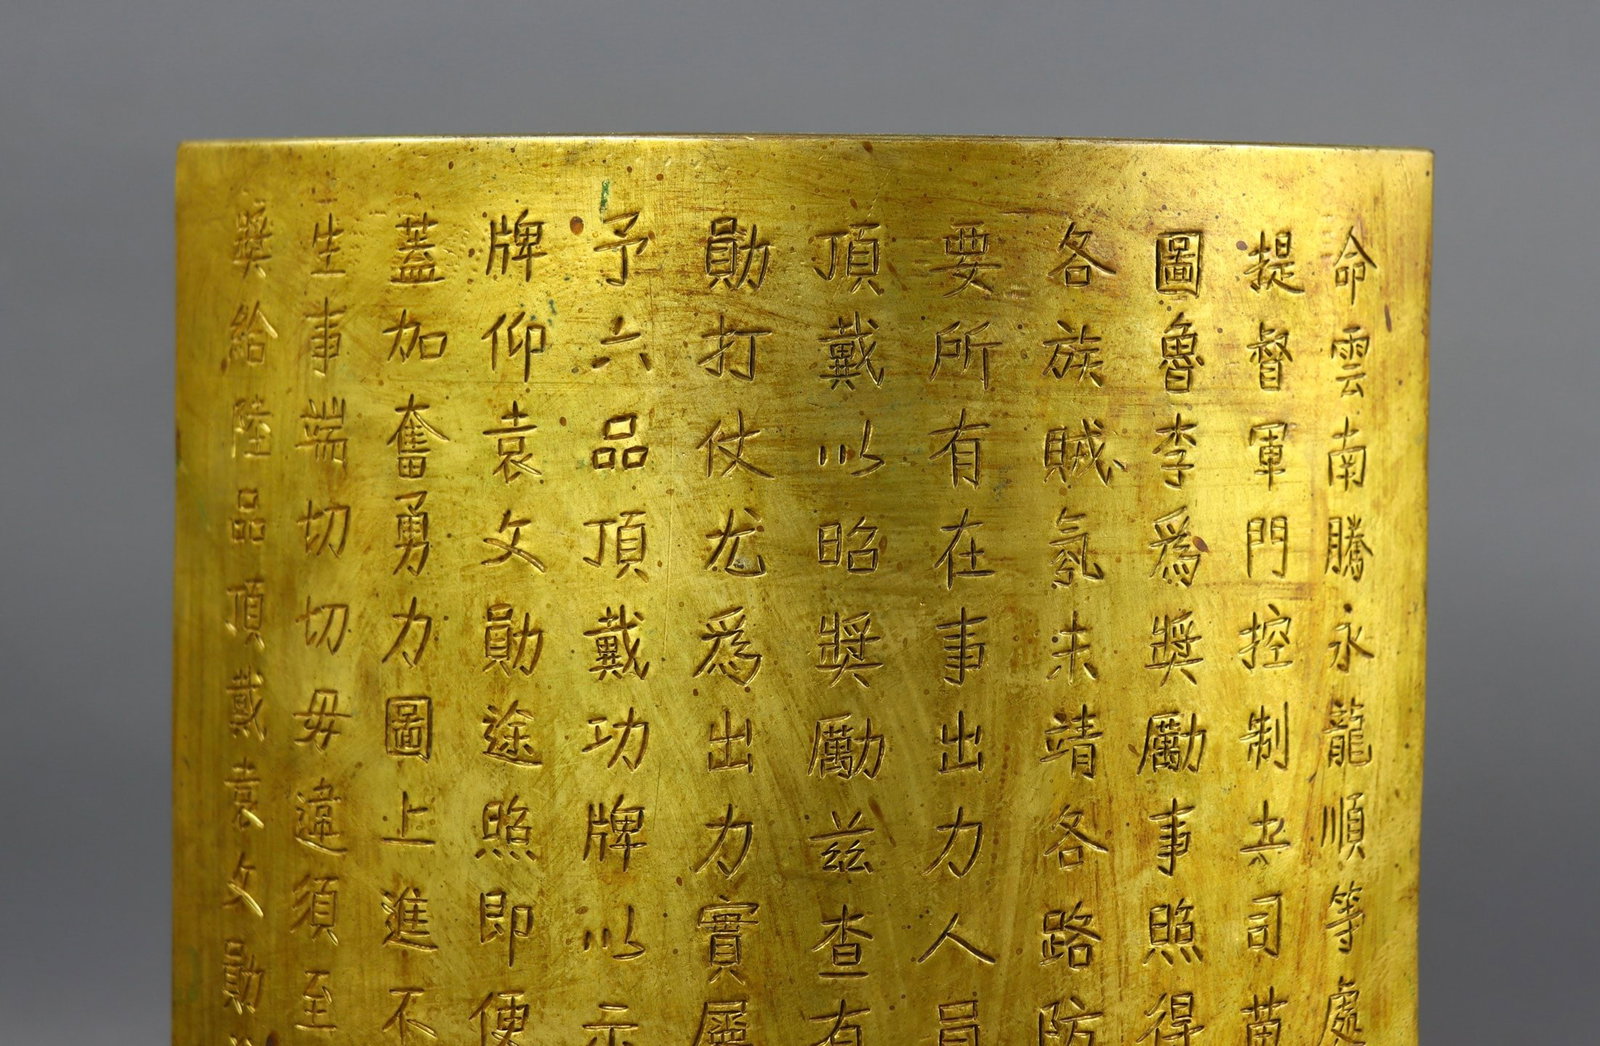 命雲南騰永龍順等處
提督軍門控制土司苗
圖魯李爲獎勵事照得
各族賊氛未靖各路防
要所有在事出力人員
頂戴以昭獎勵茲查有
勛打仗尤爲出力實屬
予六品頂戴功牌以示
牌仰袁文勛途照即便
蓋加奮勇力圖上進不
生事端切切毋違須至
獎給陸品頂戴袁文勛